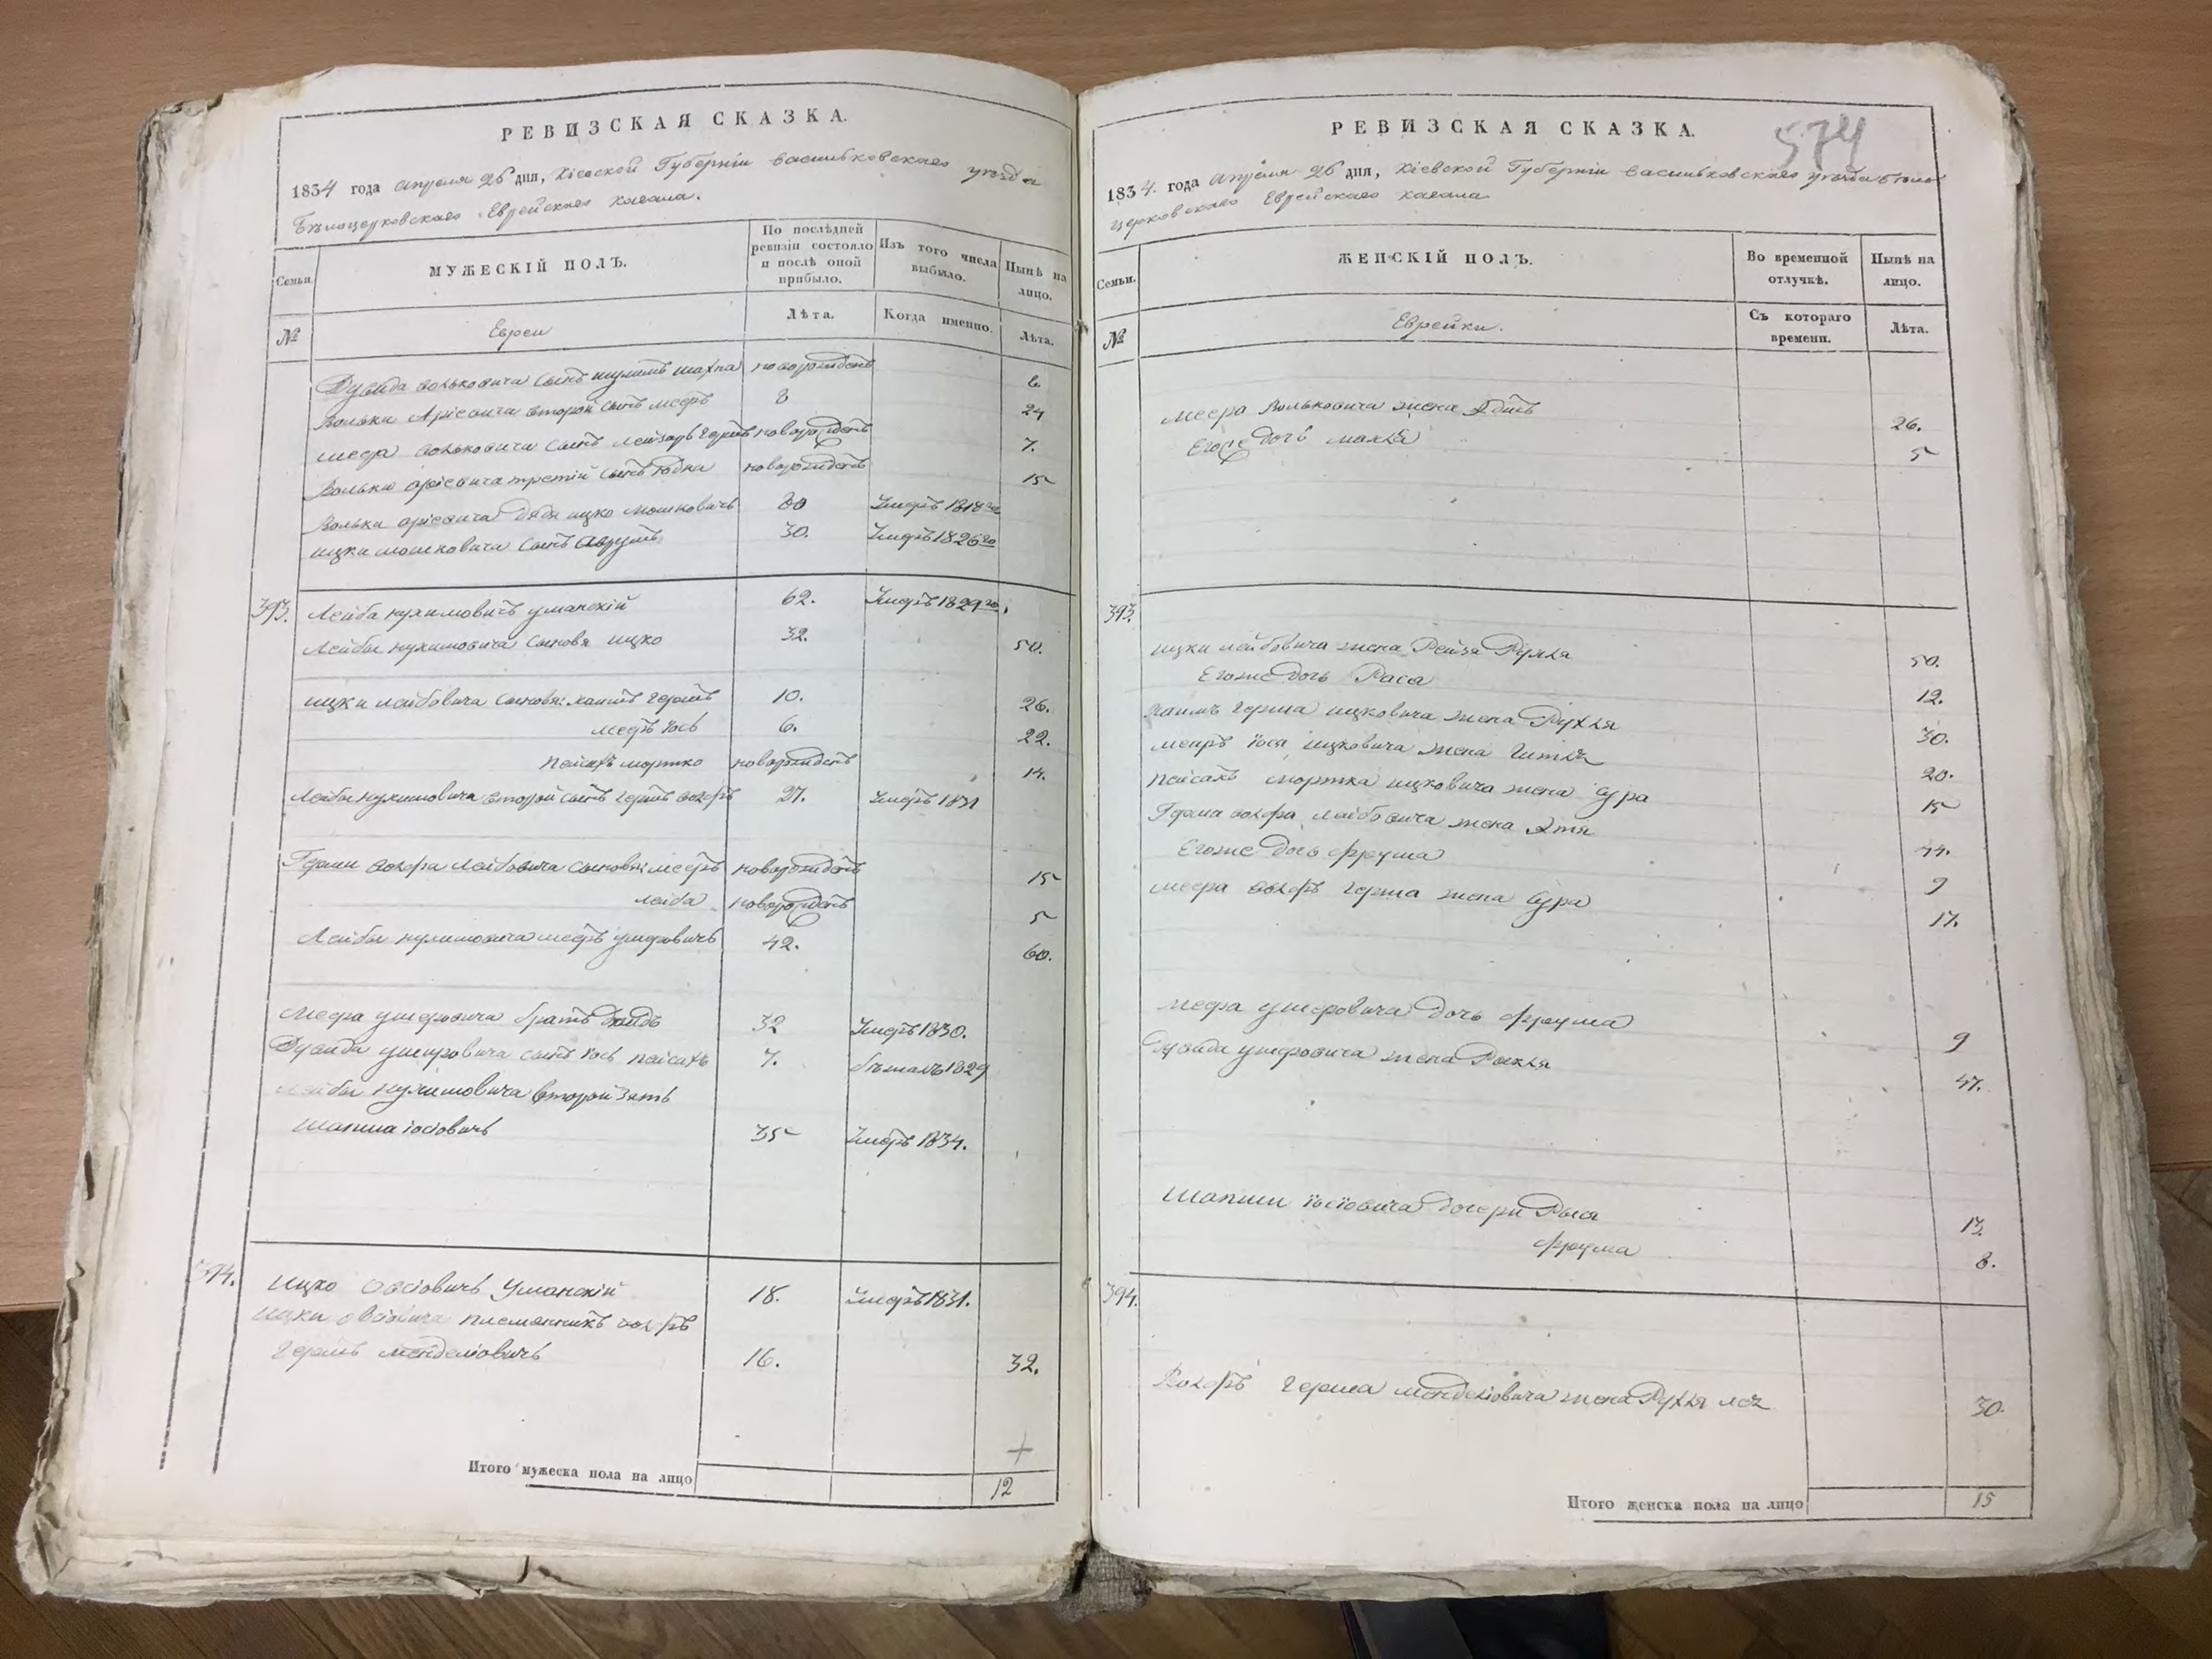 РЕВИЗСКАЯ СКАЗКА.
1834 года апреля 26 дня, Кіевской Губерніи васильковскаго уезда
Бѣлоцерковскаго Еврейскаго кагала.
Семьи.
МУЖЕСКІЙ ПОЛЪ.
По послѣдней ревизіи состояло и послѣ оной прибыло.
Изъ того числа выбыло.
Нынѣ на лицо.
№
Евреи
Лѣта.
Когда именно.
Лѣта.
Дувида вольковича сынъ шулимъ шахна новорожденъ 6
Вольки Аріевича второй сынъ мееръ 8 24
меера вольковича сынъ лейзаръ герш новорожденъ 7.
Вольки аріевича третій сынъ Юдка новорожденъ 15
Вольки аріевича дядя ицко мошковичъ 80 Умеръ 1818го
ицки мошковича сынъ аврумъ 30. Умеръ 1826го
393. Лейба нухимовичъ уманскій 62. Умеръ 1829го.
Лейбы нухимовича сыновя ицко 32. 50.
ицки лейбовича сыновя: хаимъ гершъ 10. 26.
мееръ іось 6. 22.
пейсахъ мортко новорожденъ 14.
Лейбы нухимовича второй сынъ гершъ волфъ 27. Умеръ 1831
Герши волфа лейбовича сыновя: мееръ новорожденъ 15
лейба новорожденъ 5
Лейбы нухимовича мееръ ушеровичъ 42. 60.
Меера ушеровича братъ дувидъ 32 Умеръ 1830.
Дувида ушеровича сынъ іось пейсахъ 7. бежалъ 1829
Лейбы нухимовича второй зять
шапша іосіовичъ 35 Умеръ 1834.
394. Ицко овсіовичъ Уманскій 18. Умеръ 1831.
ицки овсіовича племянникъ волфъ
гершъ менделіовичъ 16. 32.
Итого мужеска пола на лицо 12
574
РЕВИЗСКАЯ СКАЗКА.
1834. года апреля 26 дня, Кіевской Губерніи васильковскаго уезда бѣло
церковскаго Еврейскаго кагала
Семьи.
ЖЕНСКІЙ ПОЛЪ.
Во временной отлучкѣ.
Нынѣ на лицо.
№
Еврейки.
Съ котораго времени.
Лѣта.
меера Вольковича жена 26.
Егоже дочь малка 5
393.
ицки лейбовича жена Рейзя Рухля 50.
Егоже дочь Раса 12.
хаимъ герша ицковича жена Рухля 30.
меиръ іося ицковича жена Гитля 20.
пейсахъ мортка ицковича жена сура 15
Герша волфа лейбовича жена Этя 44.
Егоже дочь фрума 9
меера волфъ герша жена сура 17.
меера ушеровича дочь фрума 9
Дувида ушеровича жена Рухля 47.
шапши іосіовича дочери Рыся 13.
фрума 8.
394.
Волфъ герша менделіовича жена Рухля лея 30.
Итого женска пола на лицо 15